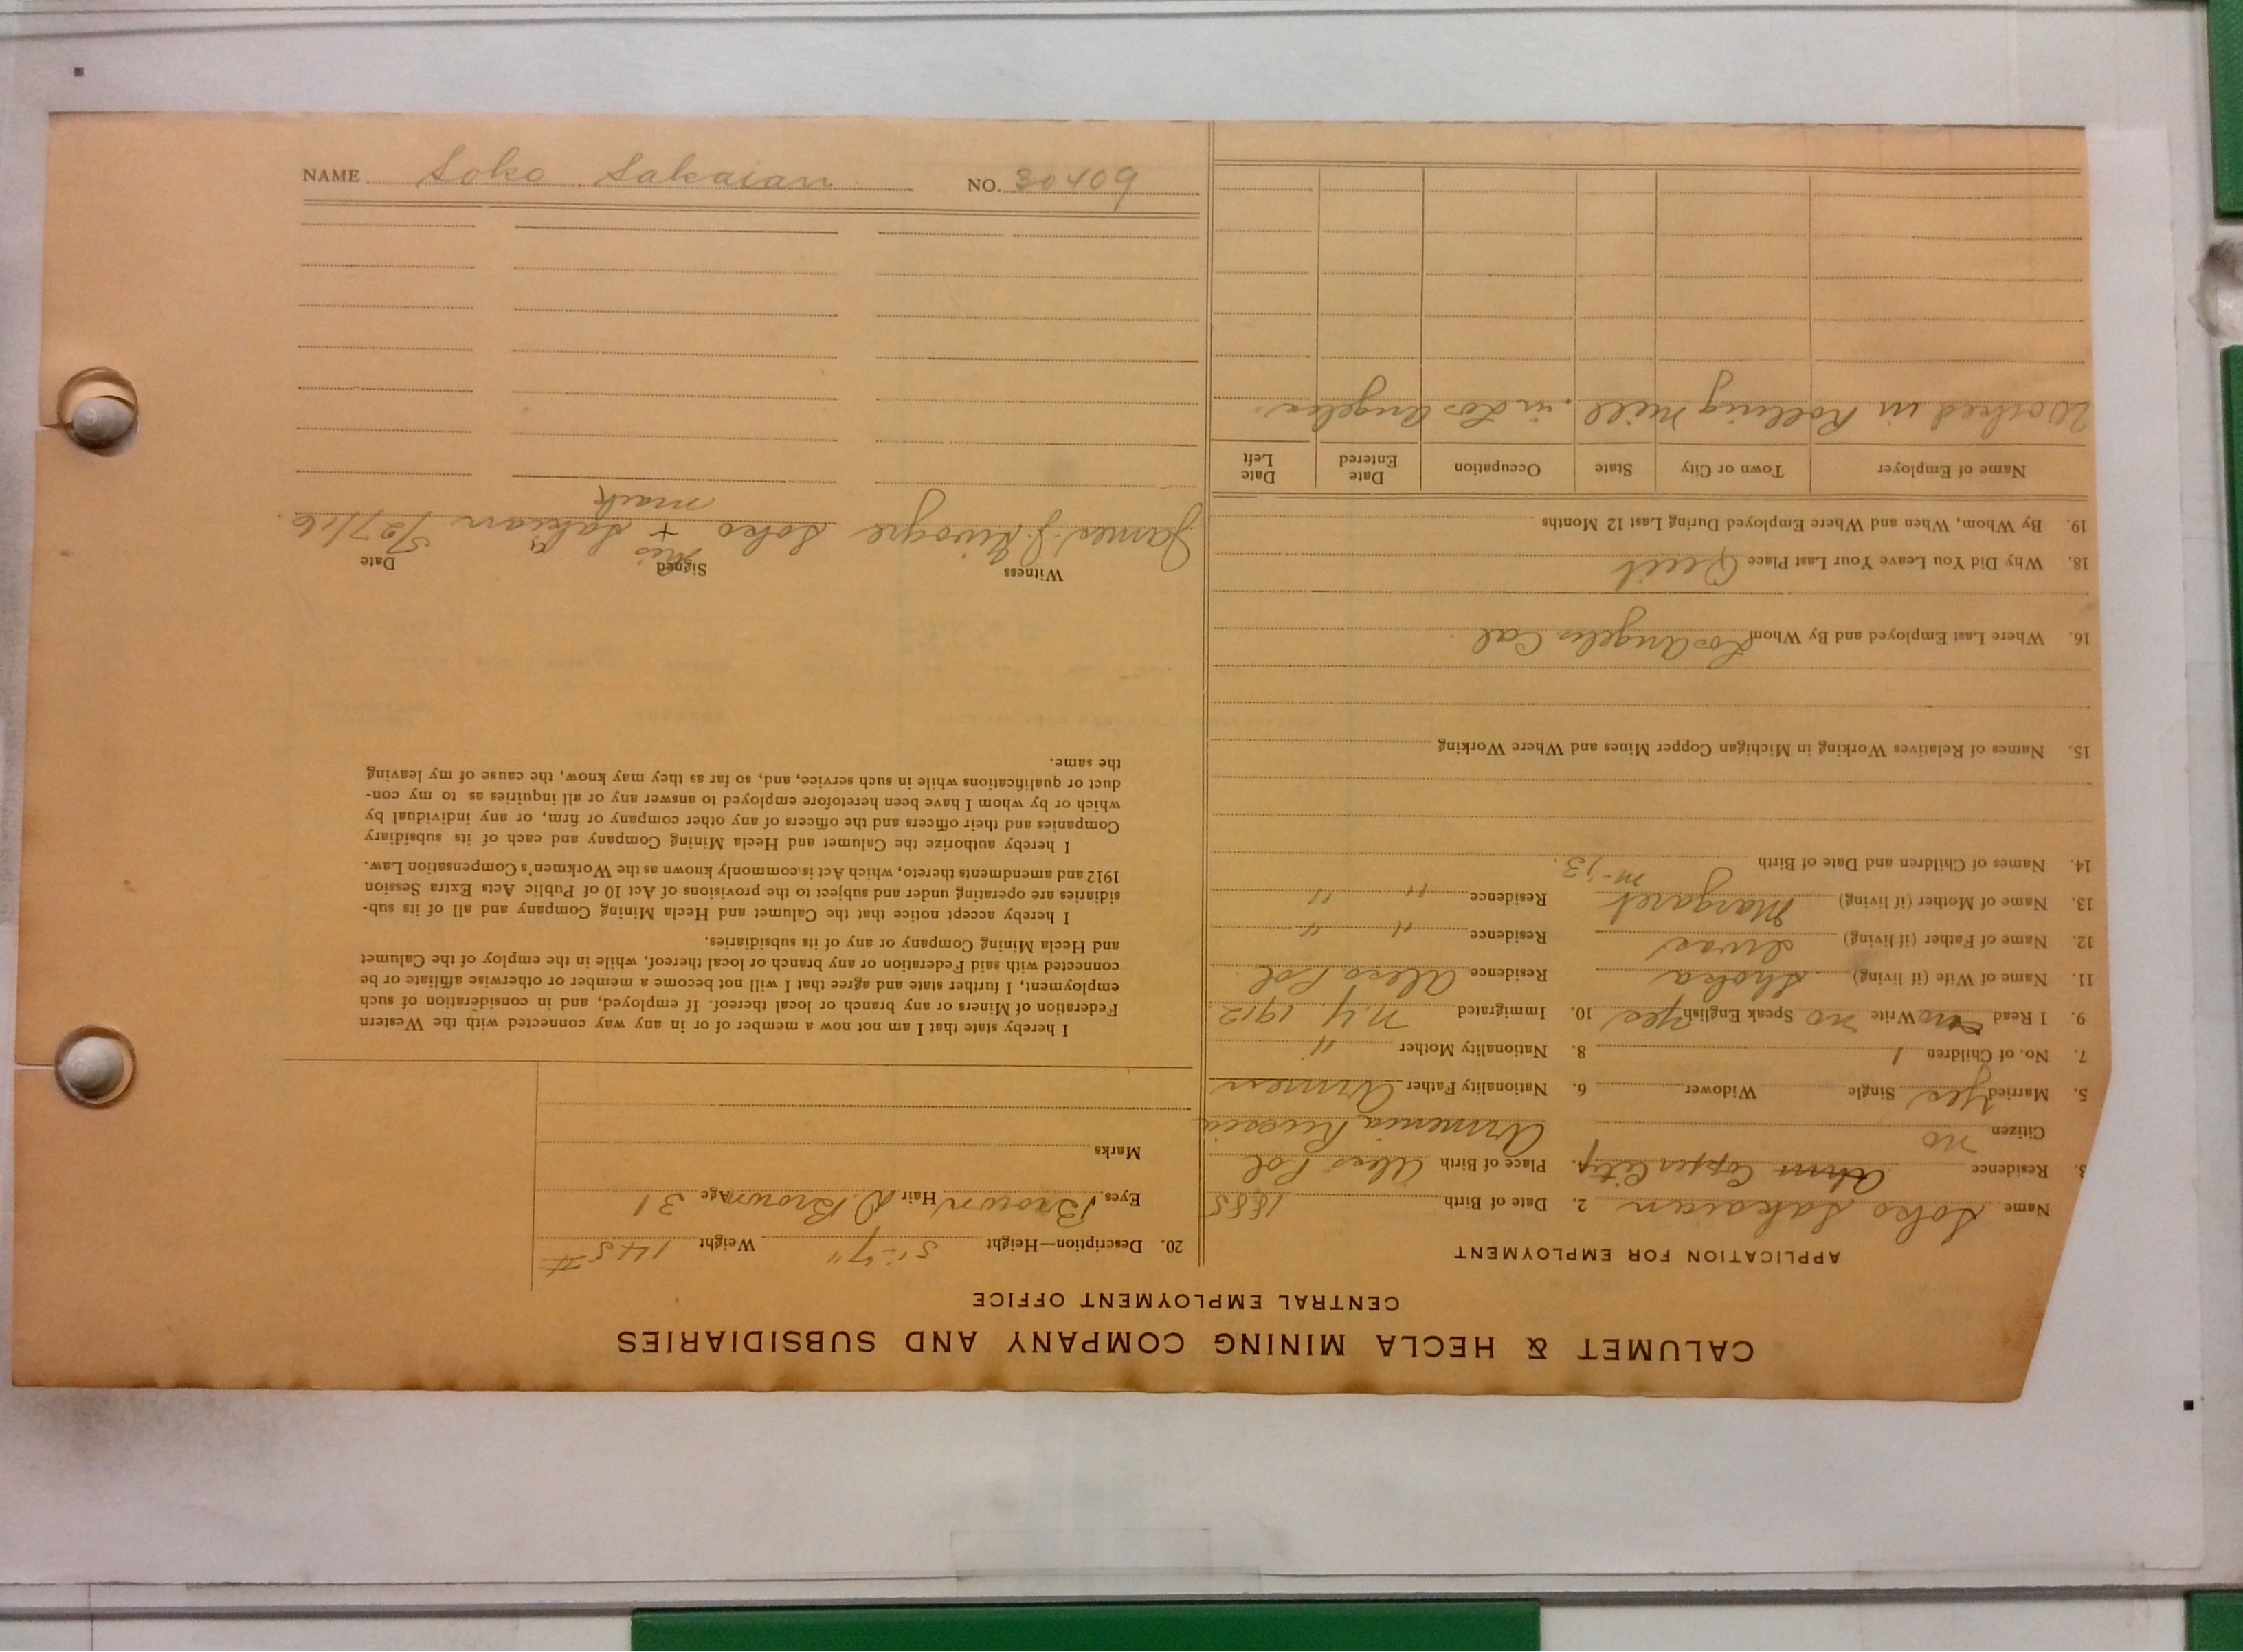 CALUMET & HECLA MINING COMPANY AND SUBSIDIARIES
CENTRAL EMPLOYMENT OFFICE
APPLICATION FOR EMPLOYMENT
Name Soko Sakaian 2. Date of Birth 1885
3. Residence Copper City. Place of Birth Alex Pol
Citizen no Armenia Russia
5. Married Yes Single Widower 6. Nationality Father Armen
7. No. of Children 1 8. Nationality Mother "
9. I Read no Write no Speak English Yes 10. Immigrated N.Y. 1912
11. Name of Wife (if living) Shoka Residence Alex Pol
12. Name of Father (if living) Residence " "
13. Name of Mother (if living) Margaret Residence " "
14. Names of Children and Date of Birth m-j3.
15. Names of Relatives Working in Michigan Copper Mines and Where Working
16. Where Last Employed and By Whom Los Angeles Cal
18. Why Did You Leave Your Last Place Quit
19. By Whom, When and Where Employed During Last 12 Months
Name of Employer Town or City State Occupation Date Entered Date Left
Worked in Rolling Mill in Los Angeles.
20. Description—Height 5'-7" Weight 145#
Eyes Brown Hair D Brown Age 31
Marks
I hereby state that I am not now a member of or in any way connected with the Western
Federation of Miners or any branch or local thereof. If employed, and in consideration of such
employment, I further state and agree that I will not become a member or otherwise affiliate or be
connected with said Federation or any branch or local thereof, while in the employ of the Calumet
and Hecla Mining Company or any of its subsidiaries.
I hereby accept notice that the Calumet and Hecla Mining Company and all of its sub-
sidiaries are operating under and subject to the provisions of Act 10 of Public Acts Extra Session
1912 and amendments thereto, which Act is commonly known as the Workmen's Compensation Law.
I hereby authorize the Calumet and Hecla Mining Company and each of its subsidiary
Companies and their officers and the officers of any other company or firm, or any individual by
which or by whom I have been heretofore employed to answer any or all inquiries as to my con-
duct or qualifications while in such service, and, so far as they may know, the cause of my leaving
the same.
Witness Signed Date
his
James J. Soko + Sakaian 5/27/16.
mark
NAME Soko Sakaian NO. 30409